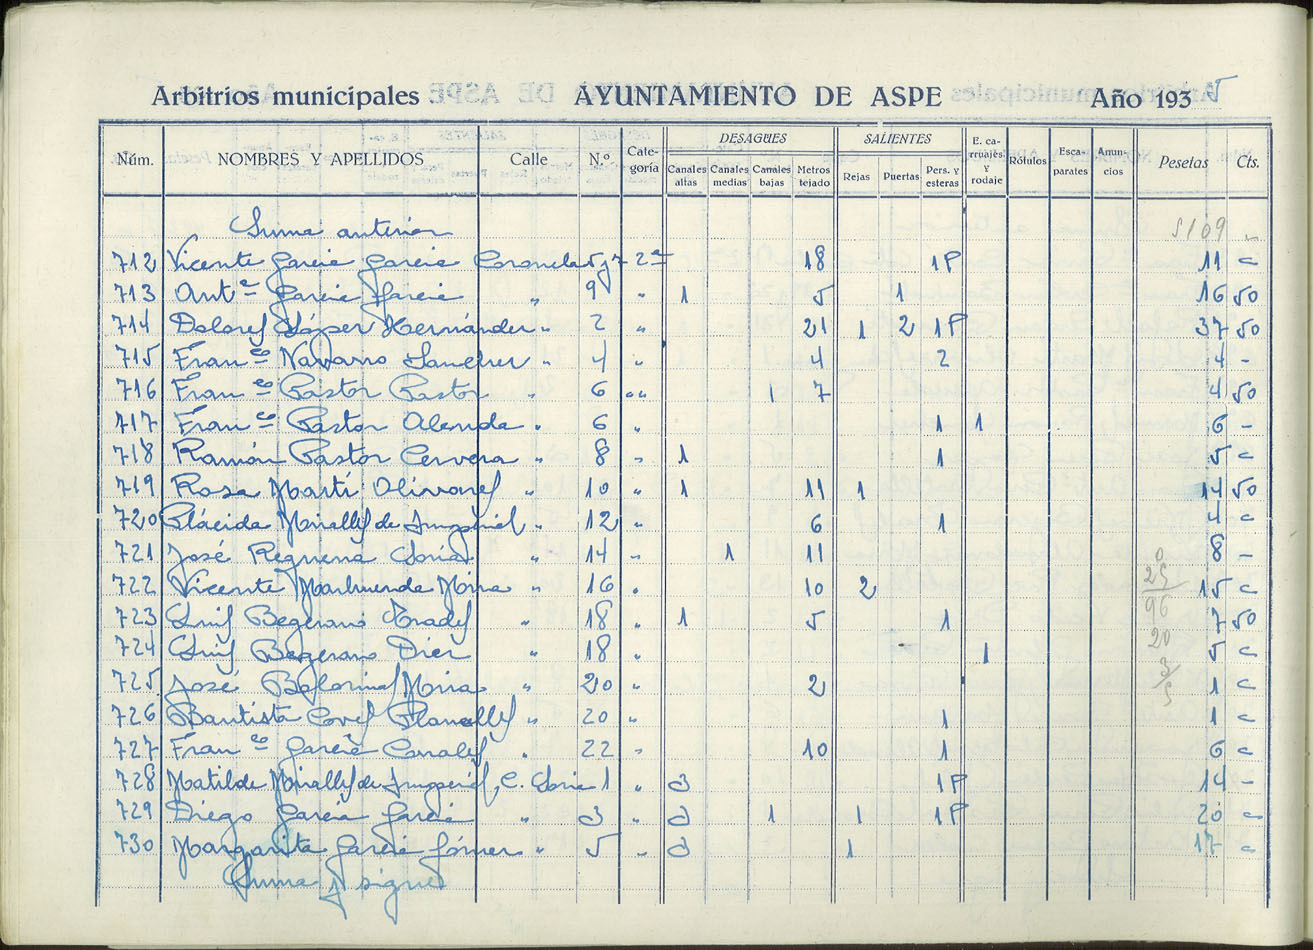 Arbitrios municipales AYUNTAMIENTO DE ASPE Año 1935
DESAGÜES SALIENTES
Núm. NOMBRES Y APELLIDOS Calle N.º Categoría Canales altas Canales medias Canales bajas Metros tejado Rejas Puertas Pers. y esteras E. carruajes y rodaje Rótulos Escaparates Anuncios Pesetas Cts.
Suma anterior 5109
712 Vicente García García Coronela 5 y 7 2ª 18 1P 11 "
713 Antº García García " 9 " 1 5 1 16 50
714 Dolores López Hernández " 2 " 21 1 2 1P 37 50
715 Franco Navarro Sanchez " 4 " 4 2 4 -
716 Franco Pastor Pastor " 6 " 1 7 4 50
717 Franco Pastor Alenda " 6 " 1 1 6 -
718 Ramón Pastor Cervera " 8 " 1 1 5 "
719 Rosa Martí Olivares " 10 " 1 11 1 14 50
720 Plácida Miralles de Imperial " 12 " 6 1 4 "
721 José Requena Soria " 14 " 1 11 8 -
722 Vicente Marhuenda Mira " 16 " 10 2 15 "
723 Luis Bejerano Prades " 18 " 1 5 1 7 50
724 Luis Bejerano Diez " 18 " 1 5 "
725 José Mira " 20 " 2 1 "
726 Bautista Planelles " 20 " 1 1 "
727 Franco García Canales " 22 " 10 1 6 "
728 Matilde Miralles de Imperial, C. Soria 1 " 3 1P 14 -
729 Diego García García " 3 " 3 1 1 1P 20 "
730 Margarita García Gómez " 5 " 3 1 17 "
Suma y sigue
0
25
96
20
3
5